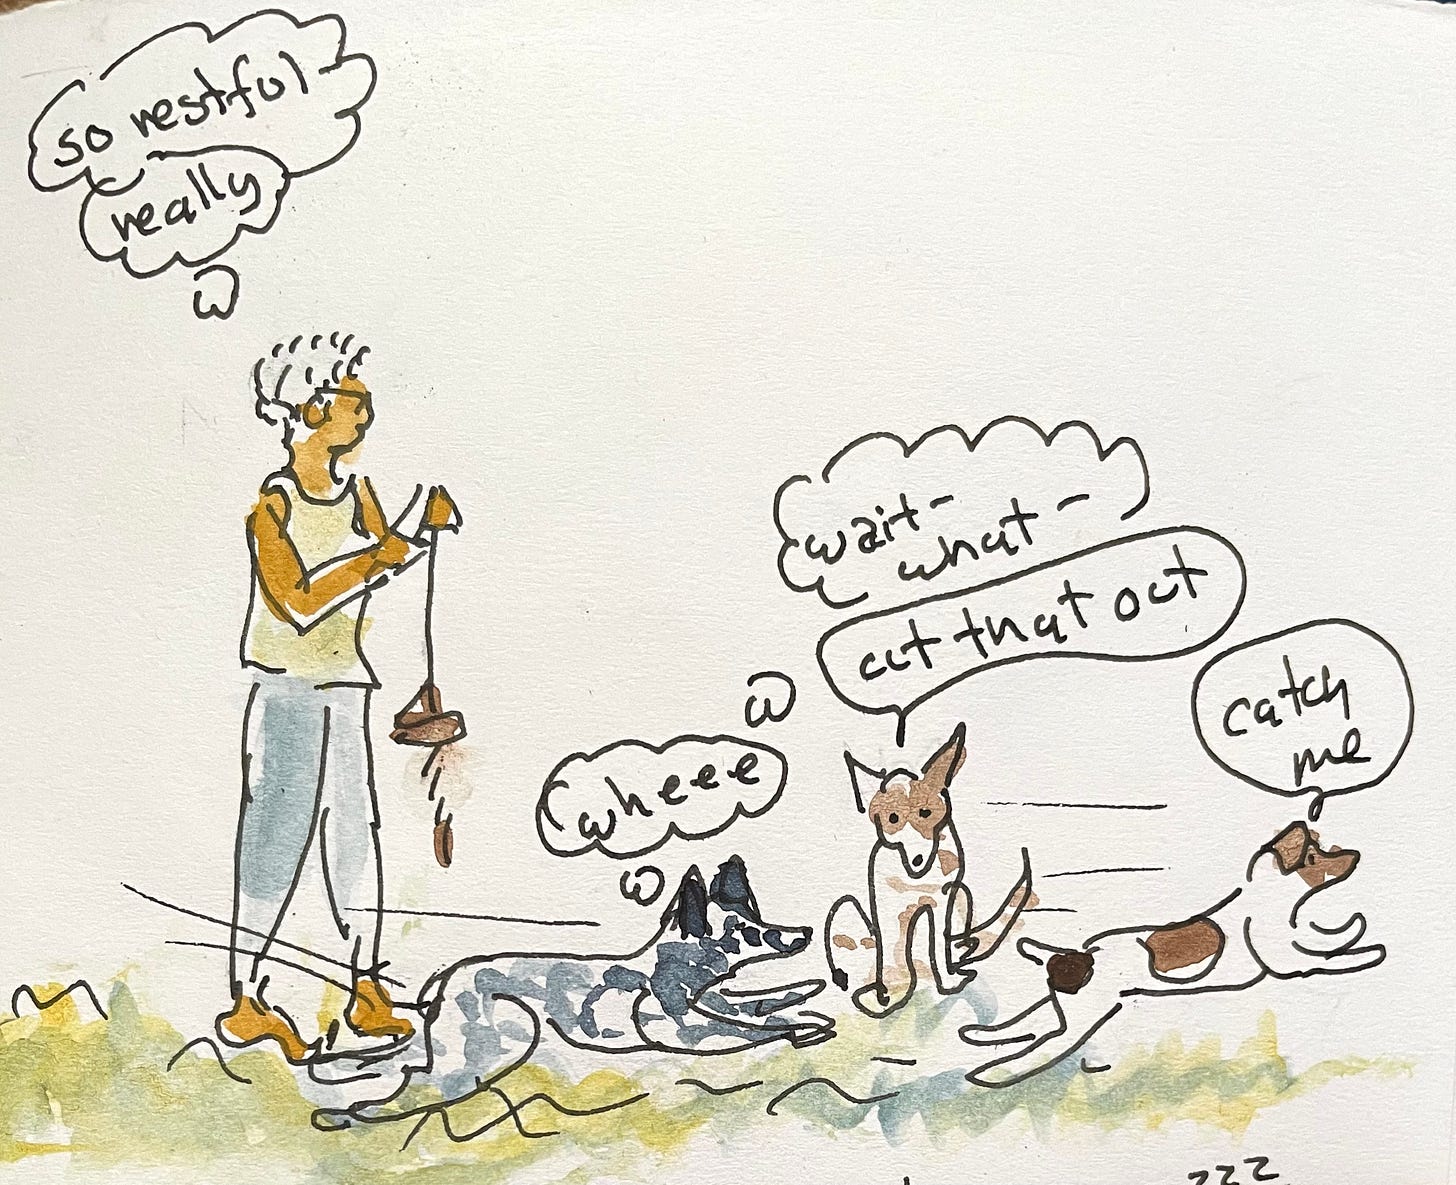 so restful
really
wait-
what-
cut that out
wheee
catch
me
zzz